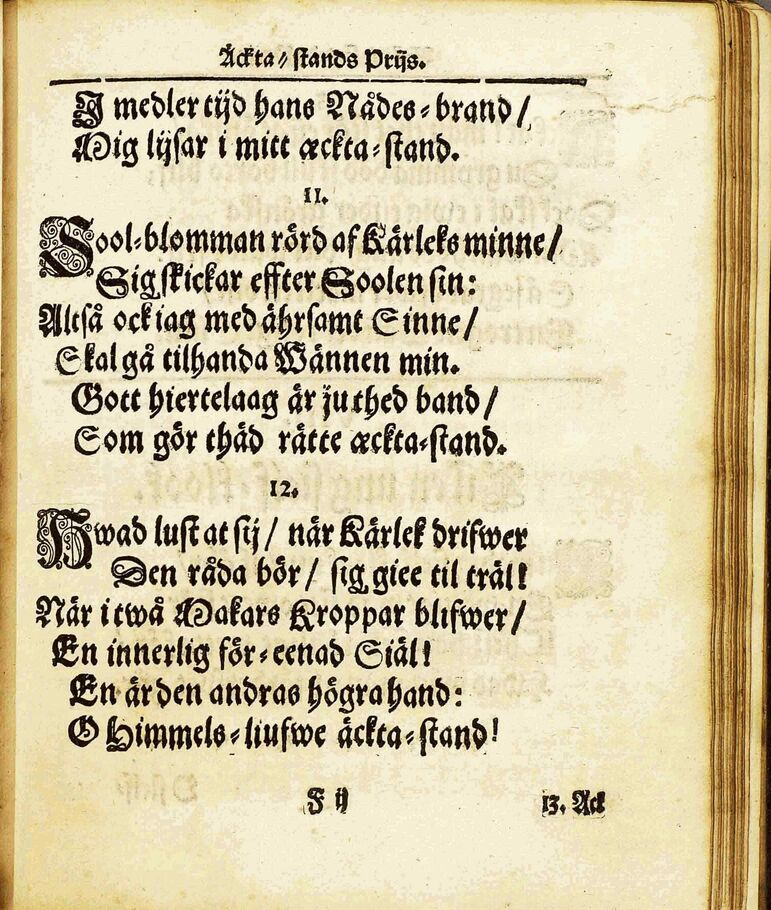 Äckta⸗stands Prijs.
I medler tijd hans Nådes⸗brand/
Mig lijsar i mitt æckta⸗stand.
11.
Sool⸗blomman rörd af Kärleks minne/
Sig skickar effter Soolen sin:
Altså ock iag med ährsamt Sinne/
Skal gå tilhanda Wännen min.
Gott hiertelaag är ju thed band/
Som gör thäd rätte æckta⸗stand.
12.
Hwad lust at sij/ når Kärlek drifwer
Den råda bör/ sig giee til träl!
När i twå Makars Kroppar blifwer/
En innerlig för⸗eenad Siäl!
En är den andras högra hand:
O Himmels⸗liufwe äckta⸗stand!
F ij
13. Ack